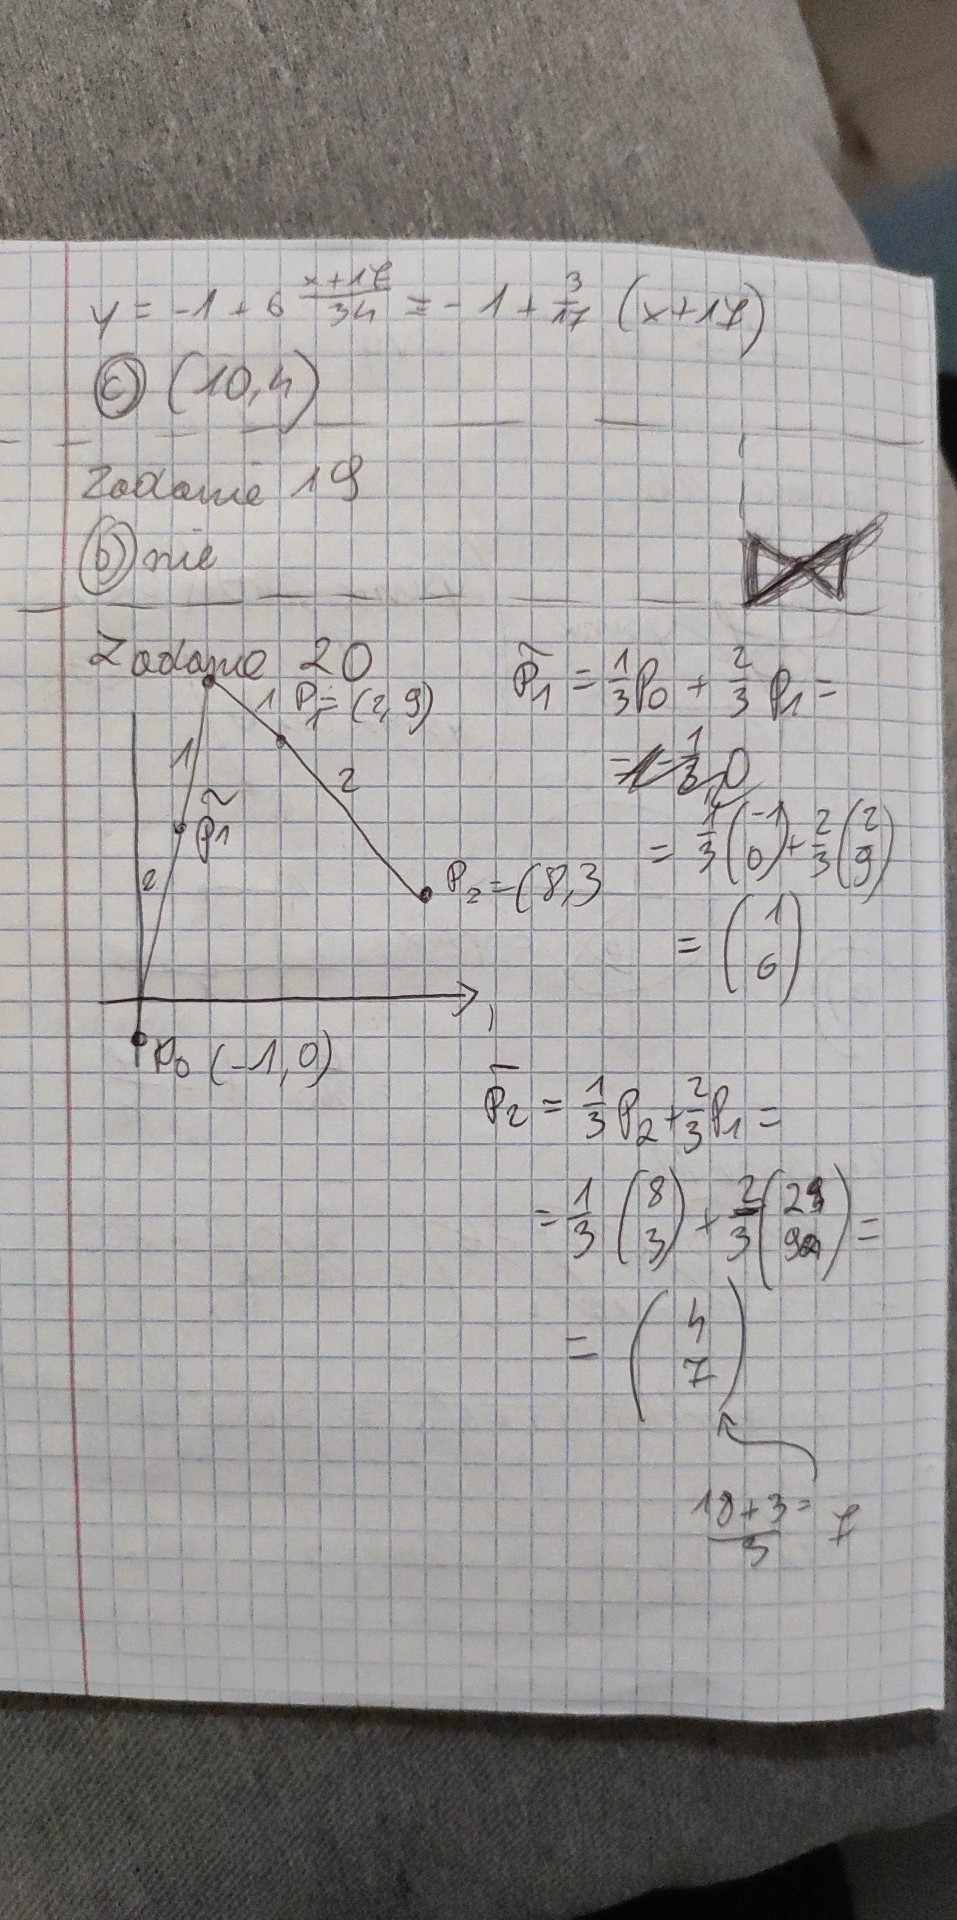 y = -1 + 6 \frac{x+17}{34} = -1 + \frac{3}{17} (x+17)
(c) (10,4)
Zadanie 19
(b) nie
Zadanie 20
P_1 = (2,9)
1
2
1
\tilde{P}_1
2
P_2 = (8,3
P_0 (-1,0)
\tilde{P}_1 = \frac{1}{3} P_0 + \frac{2}{3} P_1 =
= \frac{1}{3} \begin{pmatrix} -1 \\ 0 \end{pmatrix} + \frac{2}{3} \begin{pmatrix} 2 \\ 9 \end{pmatrix}
= \begin{pmatrix} 1 \\ 6 \end{pmatrix}
\bar{P}_2 = \frac{1}{3} P_2 + \frac{2}{3} P_1 =
= \frac{1}{3} \begin{pmatrix} 8 \\ 3 \end{pmatrix} + \frac{2}{3} \begin{pmatrix} 2 \\ 9 \end{pmatrix} =
= \begin{pmatrix} 4 \\ 7 \end{pmatrix}
\frac{18+3}{3} = 7